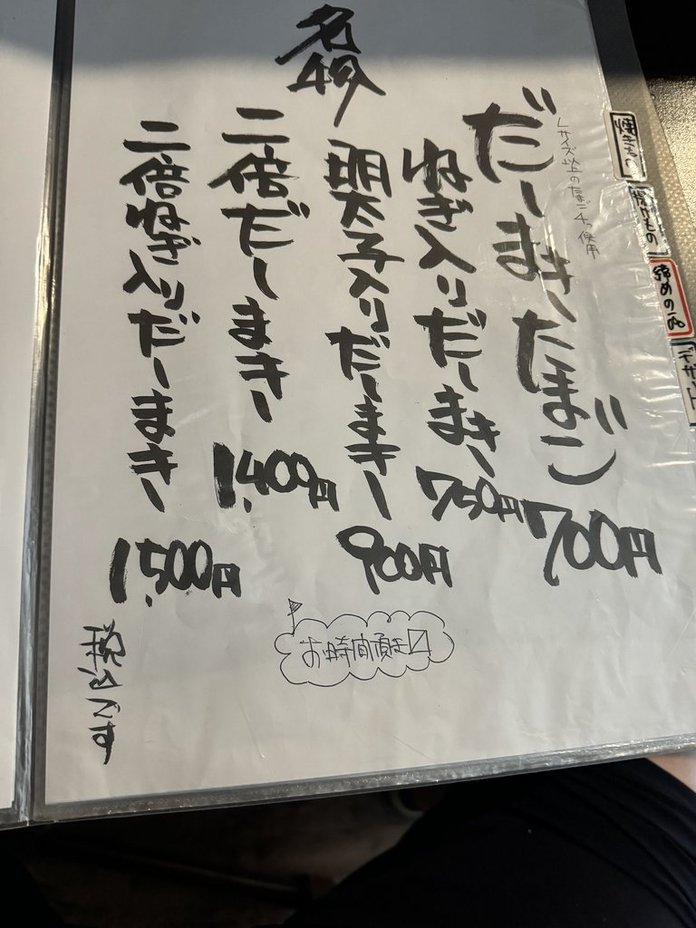 名物
だーまきたまご 700円
Lサイズ以上のたまご4つ使用
ねぎ入りだーまき 750円
明太子入りだーまきー 900円
二倍だーまきー 1,400円
二倍ねぎ入りだーまきー 1,500円
お時間頂き〼
税込です
焼きもの
揚げもの
締めの一品
デザート